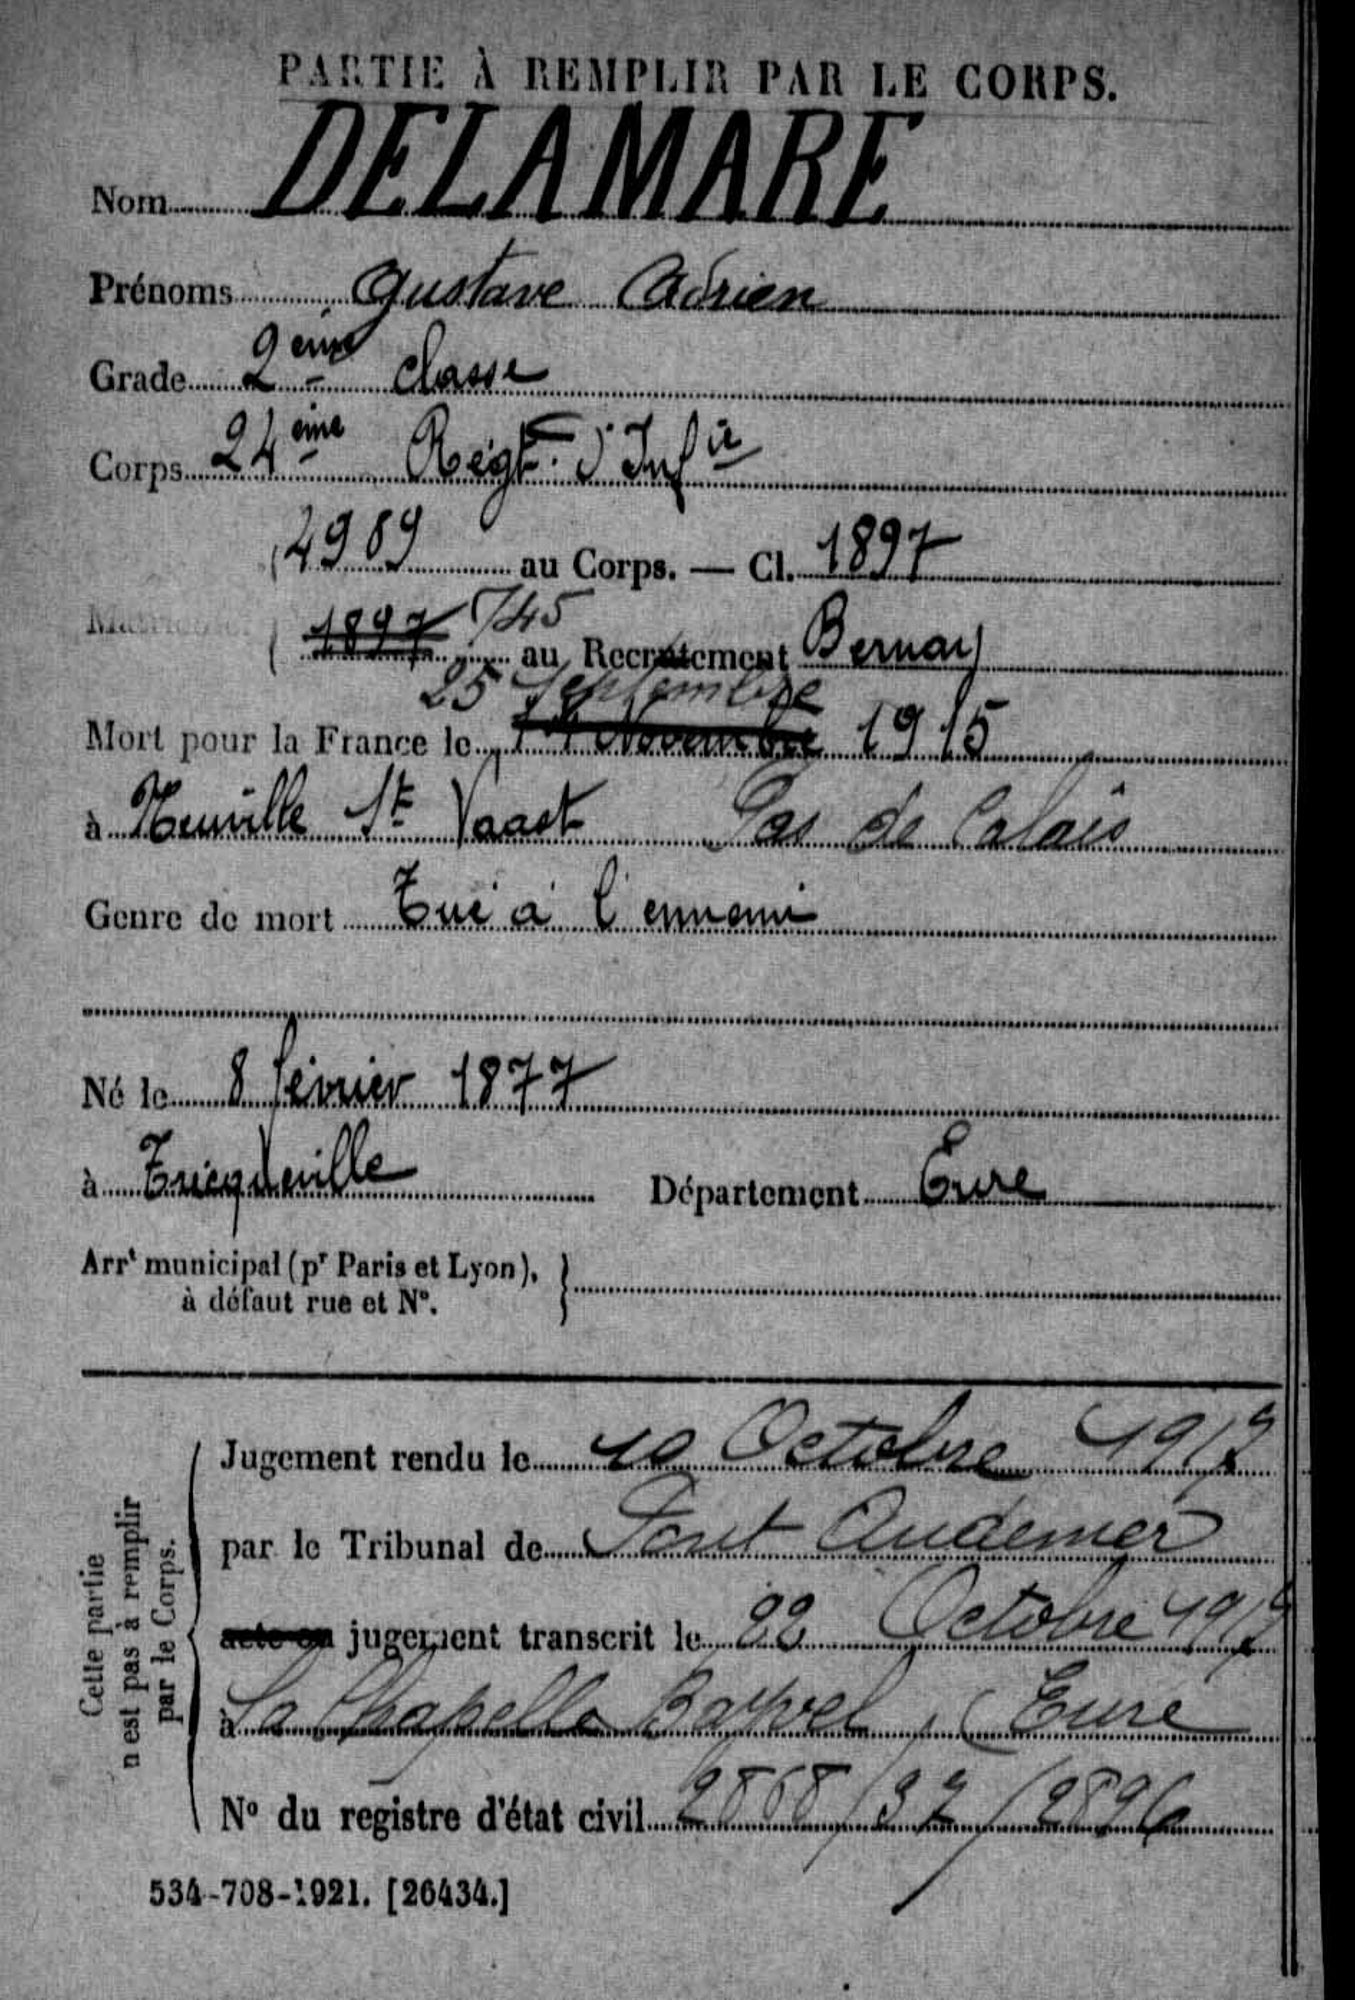 PARTIE À REMPLIR PAR LE CORPS.
Nom DELAMARE
Prénoms Gustave Adrien
Grade 2ème classe
Corps 24ème Régt. d'Infie
Matricule. 4989 au Corps. — Cl. 1897
1897 745 au Recrutement Bernay
25 Septembre
Mort pour la France le 14 Novembre 1915
à Neuville St Vaast Pas de Calais
Genre de mort Tué à l'ennemi
Né le 8 février 1877
à Tricqueville Département Eure
Arrt municipal (pr Paris et Lyon),
à défaut rue et N°.
Cette partie
n'est pas à remplir
par le Corps.
Jugement rendu le 10 Octobre 1917
par le Tribunal de Pont Audemer
acte ou jugement transcrit le 22 Octobre 1917
à La Chapelle Bayvel, (Eure
N° du registre d'état civil 2868/37/2896
534-708-1921. [26434.]